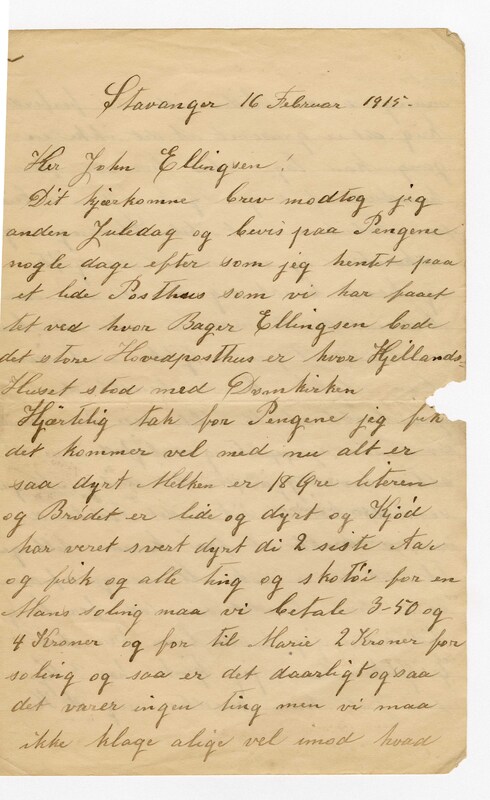 Stavanger 16 Februar 1915.
Her John Ellingsen!
Dit kjærkomne brev modtog jeg
anden Juledag og bevis paa Pengene
nogle dage efter som jeg hentet paa
et lide Posthus som vi har faaet
tet ved hvor Bager Ellingsen bode
det store Hovedposthus er hvor Kjellands-
Huset stod med Domkirken
Hjärtelig tak for Pengene jeg fik
det kommer vel med nu alt er
saa dyrt Melken er 18 Øre literen
og Brødet er lide og dyrt og Kjød
har veret svert dyrt di 2 siste Aar
og fisk og alle ting og skotøi for en
Mans soling maa vi betale 3-50 og
4 Kroner og for til Marie 2 Kroner for
soling og saa er det daarligt ogsaa
det varer ingen ting men vi maa
ikke klage alige vel imod hvad